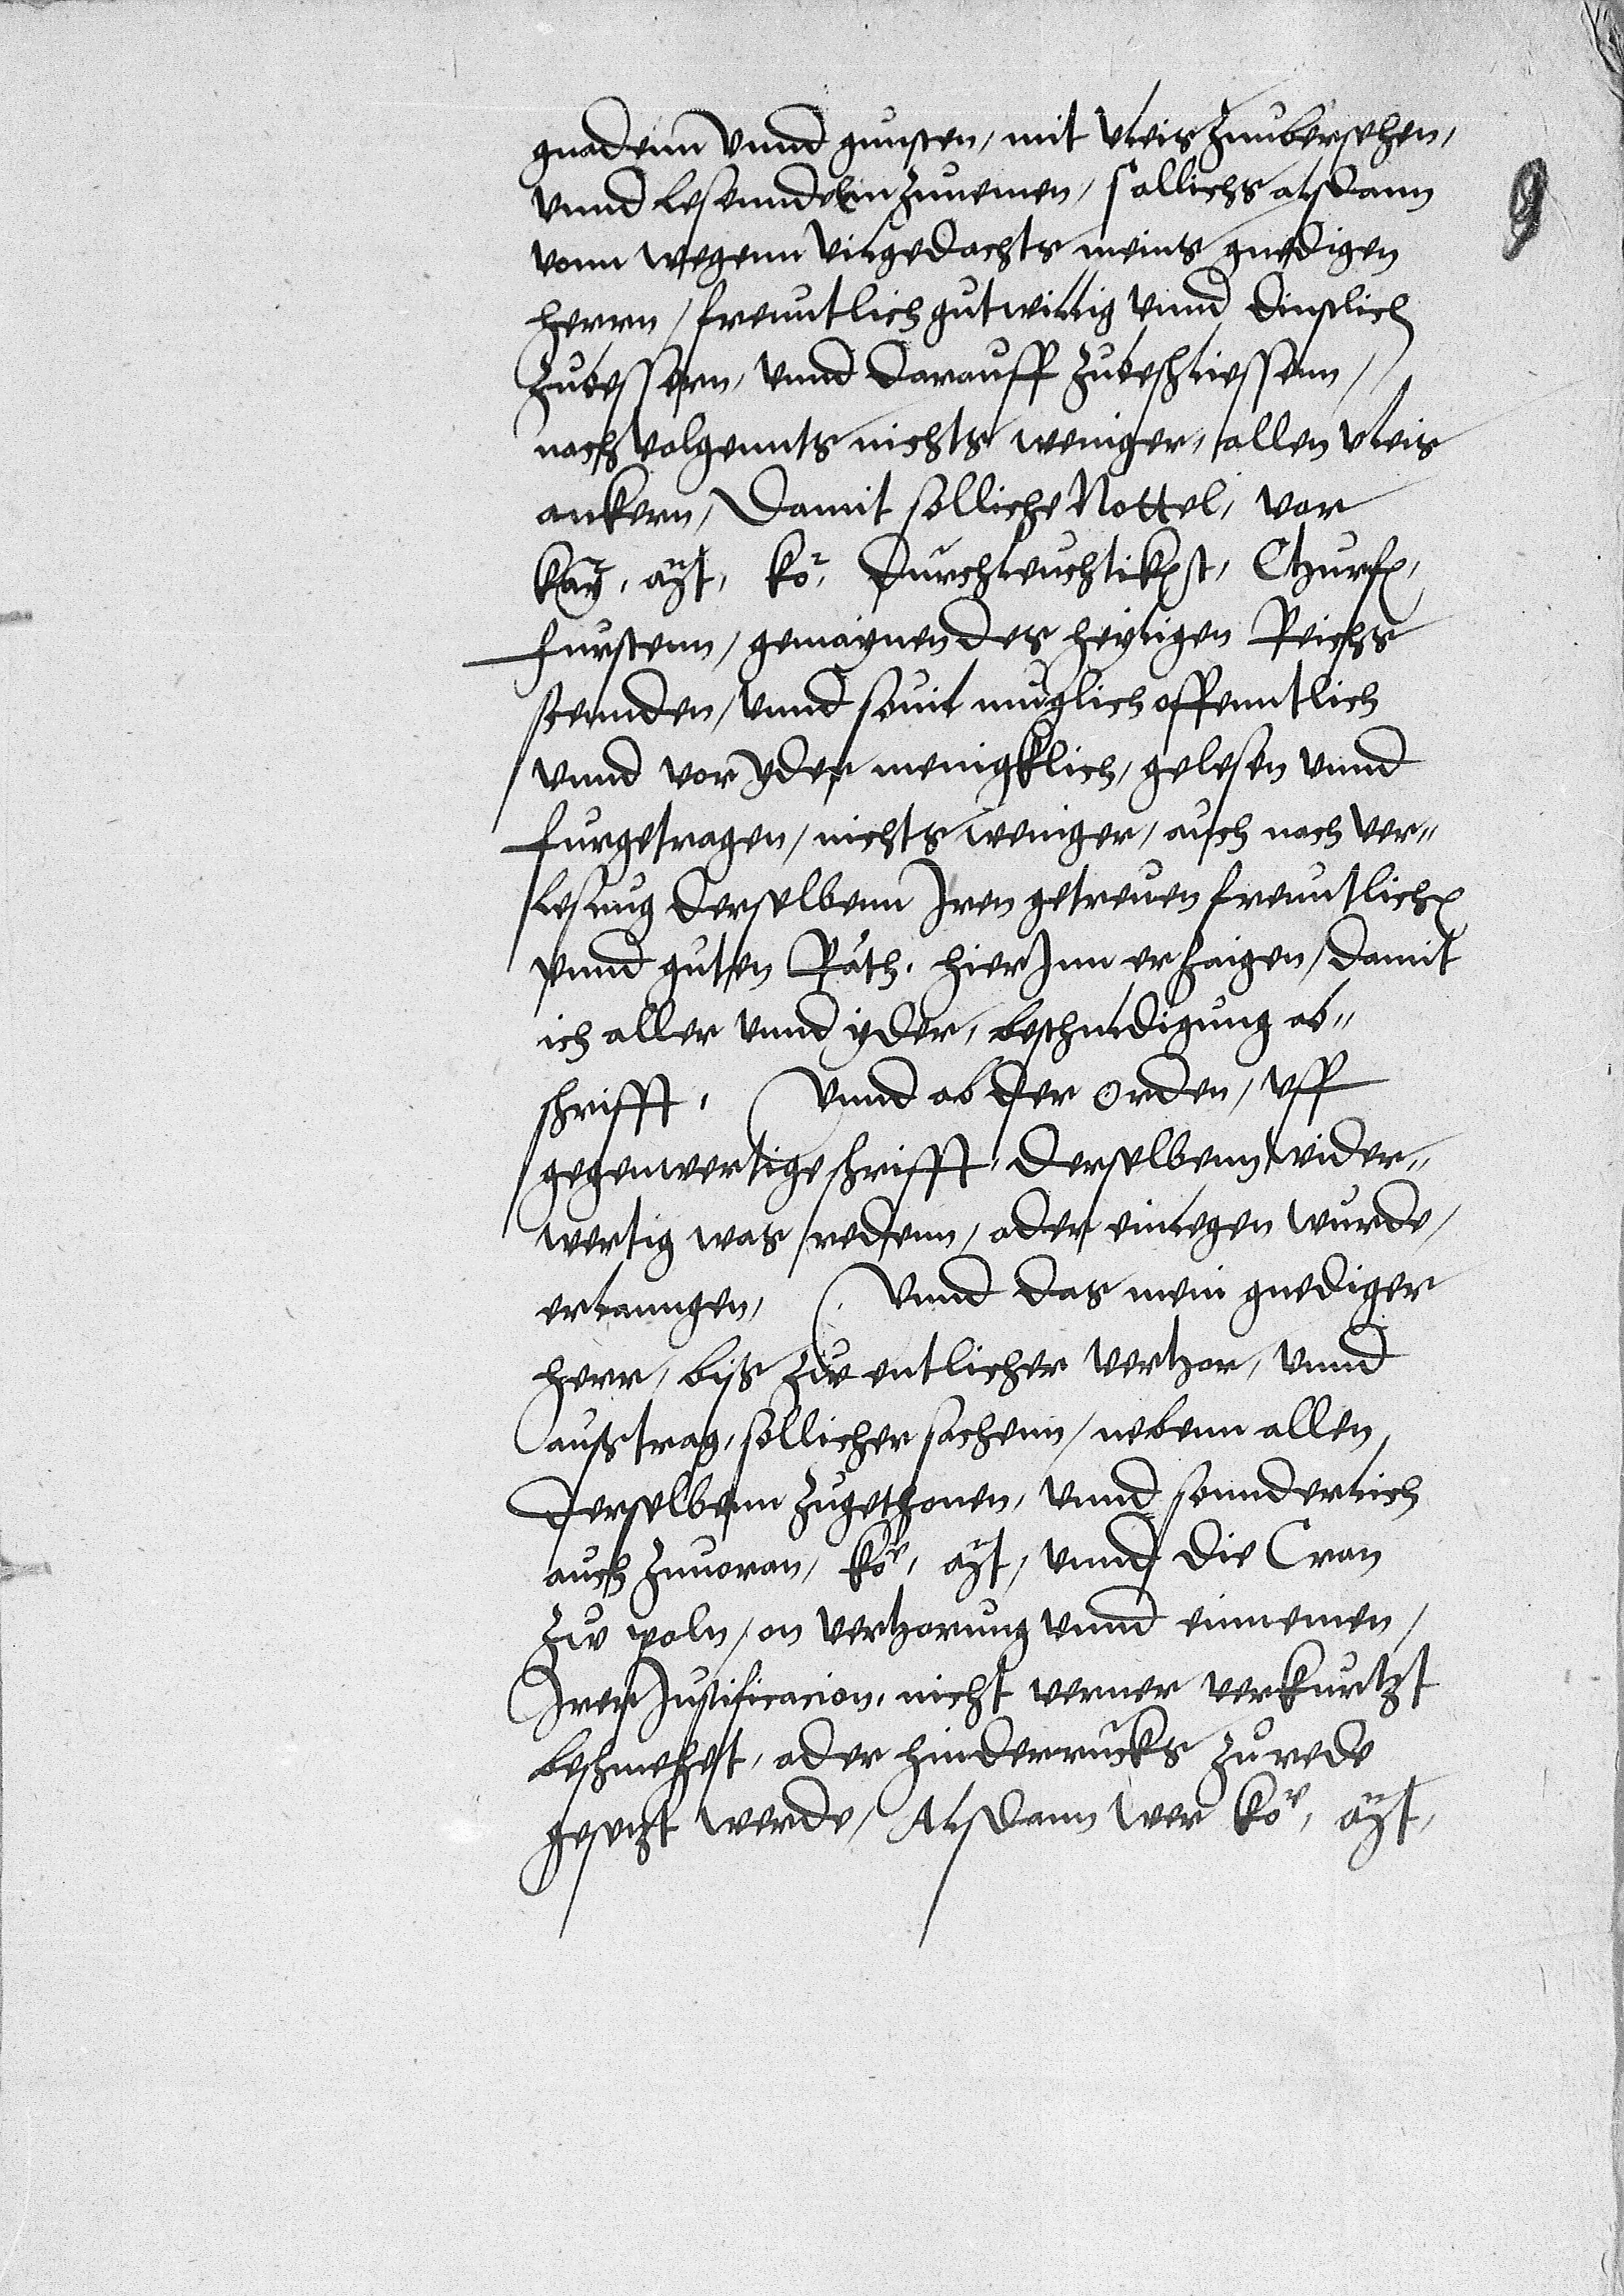 9
gnadenn vnnd gunsten, mit vleis zuubersehen,
vnnd lesennde einzunemen, sollichs alsdann
vonn wegenn vilgedachts meins gnedigen
herrn, freuntlich gutwillig vnnd dinstlich
zubessern, vnnd darauff zubeschliessenn,
nach volgennts nichts weniger, allen vleis
ankern, Damit solliche Nottel, vor
kay. Mt. ko. Durchleuchtikeit, Churf.
furstenn, gemaynen des heyligen Reichs
stennden, vnnd souil muglich offenntlich
vnnd vor yder menigklich, gelesen vnnd
furgetragen, nichts weniger, auch nach ver„
lesung derselbenn Iren getreuen freuntlichen
vnnd guten Rath, hierJnn erzaigen, damit
ich aller vnnd yder, beschuldigung ab„
schrifft, Vnnd ob der Orden, vff
gegenwertige schrifft, derselbenn wider„
wertig was redenn, oder einlegen wurde,
erlanngen, Vnnd das mein gnediger
herr, biss zw entlicher verhor, vnnd
ausstrag, sollicher sachenn, nebenn allen
derselbenn zugethonen, vnnd sonnderlich
auch zuuoran, ko. Mt. vnnd die Cron
zw poln, on verhorung vnnd einnemen,
Irer Justificacion, nicht verner verkurtzt
beschmehet, oder hinderrucks zu rede
gesetzt werde, Alsdann wer ko. Mt.